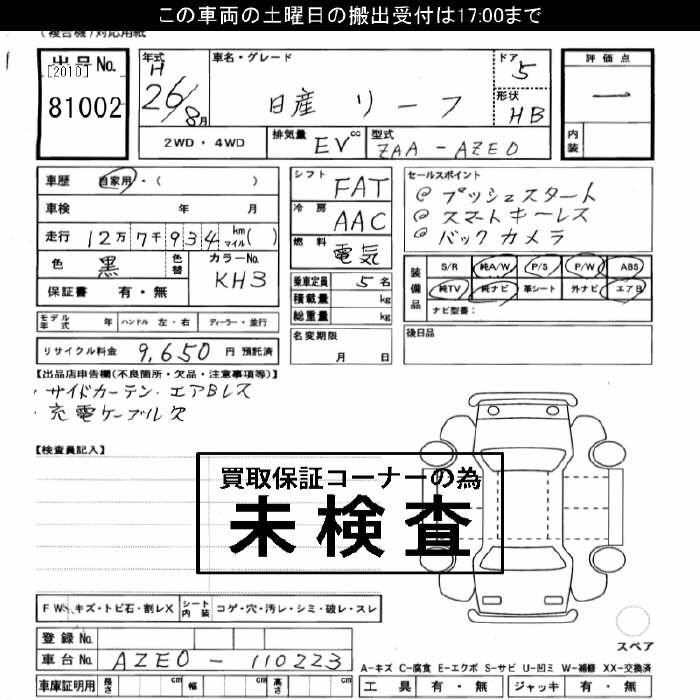 この車両の土曜日の搬出受付は17:00まで
(複合機)対応用紙
出品No.
[2010]
81002
年式
H
26/8月
車名・グレード
日産 リーフ
ドア
5
形状
HB
評価点
ー
内装
2WD・4WD
排気量
EV cc
型式
ZAA-AZE0
車歴 自家用・( )
車検 年 月
走行 12万7千934 km マイル( )
色 黒
色替
カラーNo.
KH3
保証書 有・無
モデル年式 年 ハンドル 左・右 ディーラー・並行
リサイクル料金 9,650 円 預託済
シフト FAT
冷房 AAC
燃料 電気
乗車定員 5名
積載量 kg
総重量 kg
名変期限
月 日
セールスポイント
@ プッシュスタート
@ スマートキーレス
@ バックカメラ
装備品
S/R 純A/W P/S P/W ABS
純TV 純ナビ 革シート 外ナビ エアB
ナビ型番:
後日品
【出品店申告欄(不良箇所・欠品・注意事項等)】
・サイドカーテン・エアBレス
・充電ケーブル欠
【検査員記入】
買取保証コーナーの為
未検査
FW キズ・トビ石・割レX シート内装 コゲ・穴・汚レ・シミ・破レ・スレ
登録No.
車台No. AZE0-110223
車庫証明用 長さ cm 幅 cm 高さ cm
スペア
A-キズ C-腐食 E-エクボ S-サビ U-凹ミ W-補修 XX-交換済
工具 有・無 ジャッキ 有・無